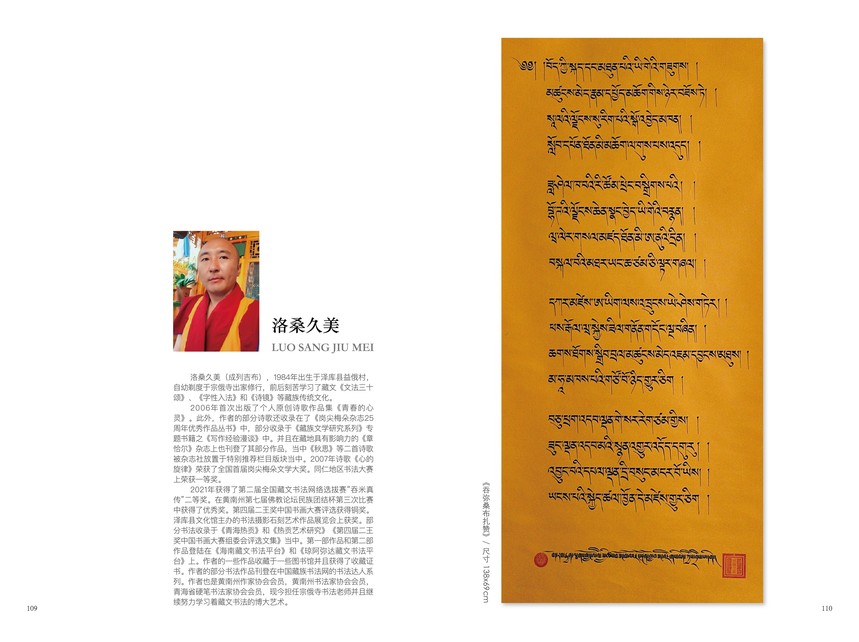 洛桑久美
LUO SANG JIU MEI
洛桑久美（成列吉布），1984年出生于泽库县益俄村，
自幼剃度于宗俄寺出家修行，前后刻苦学习了藏文《文法三十
颂》、《字性入法》和《诗镜》等藏族传统文化。
2006年首次出版了个人原创诗歌作品集《青春的心
灵》。此外，作者的部分诗歌还收录在了《岗尖梅朵杂志25
周年优秀作品丛书》中，部分收录于《藏族文学研究系列》专
题书籍之《写作经验漫谈》中。并且在藏地具有影响力的《章
恰尔》杂志上也刊登了其部分作品，当中《秋思》等二首诗歌
被杂志社放置于特别推荐栏目版块当中。2007年诗歌《心的
旋律》荣获了全国首届岗尖梅朵文学大奖。同仁地区书法大赛
上荣获一等奖。
2021年获得了第二届全国藏文书法网络选拔赛“吞米真
传”二等奖。在黄南州第七届佛教论坛民族团结杯第三次比赛
中获得了优秀奖。第四届二王奖中国书画大赛评选获得铜奖。
泽库县文化馆主办的书法摄影石刻艺术作品展览会上获奖。部
分书法收录于《青海热贡》和《热贡艺术研究》《第四届二王
奖中国书画大赛组委会评选文集》当中。第一部作品和第二部
作品登陆在《海南藏文书法平台》和《琼阿弥达藏文书法平
台》上。作者的一些作品收藏于一些图书馆并且获得了收藏证
书。作者的部分书法作品刊登在中国藏族书法网的书法达人系
列。作者也是黄南州作家协会会员，黄南州书法家协会会员，
青海省硬笔书法家协会会员，现今担任宗俄寺书法老师并且继
续努力学习着藏文书法的博大艺术。
109
《吞弥桑布扎赞》/ 尺寸：138x69cm
༄༅། །བོད་ཀྱི་སྐད་དང་མཐུན་པའི་ཡི་གེའི་གཟུགས། །
མཚུངས་མེད་རྣམ་དཔྱོད་མཆོག་གིས་ཉེར་བཟོས་ཏེ། །
ལྗོངས་སུ་རིག་པའི་སྒོ་འབྱེད་མཁན། །
སློབ་དཔོན་ཐོན་མི་མཆོག་ལ་གུས་པས་འདུད། །
ཁ་བའི་རི་ཚོམ་ཕྲེང་བསྒྲིགས་པའི། །
ལྗོངས་ཆེན་སྣང་བྱེད་ཡི་གེའི་བརྙན། །
ལྷ་ལེར་གསལ་མཛད་ཐོན་མི་ཨ་ནུའི་དྲིན། །
བསྐལ་བའི་མཐར་ཡང་ཆ་ཙམ་ཅི་ལྟར་གཞལ། །
དཀར་མཛེས་ཨ་ཡིག་ལས་འཁྲུངས་ཡེ་ཤེས་གཏེར། །
ཕས་རྒོལ་ལྟ་སྐྱེས་ཟིལ་གནོན་གདོང་ལྔ་བཞིན། །
ཆགས་ཐོགས་སྒྲིབ་བྲལ་མཚུངས་མེད་འཇམ་དབྱངས་མཐུས། །
མ་ཧཱ་མཁས་པའི་གཙོ་བོ་ཉིད་གྱུར་ཅིག །
བཅུ་ཕྲག་འདབ་ལྡན་གེ་སར་རེག་ཙམ་གྱིས། །
ཟུང་ལྡན་འདབ་མའི་སྙན་འགྱུར་འདོད་དགུར། །
འབྱུང་བའི་དཔལ་ལྡན་དྲི་བསུང་མངར་པོ་ཡིས། །
ཡངས་པའི་སྐྱེད་ཚལ་ཁྱོན་དེ་མཛེས་གྱུར་ཅིག །
110